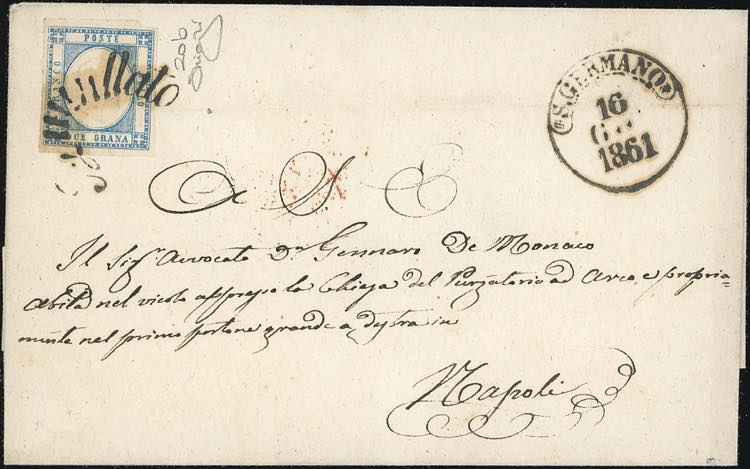 POSTE
FRANCO
BOLLO
DUE GRANA
Annullato
20b
S. GERMANO
16
1861
A S E
Il Sigr Avvocato Dn Gennaro De Monaco
abita nel vicolo appresso la Chiesa del Purgatorio ad Arco, e propria-
mente nel primo portone grande a destra in
Napoli